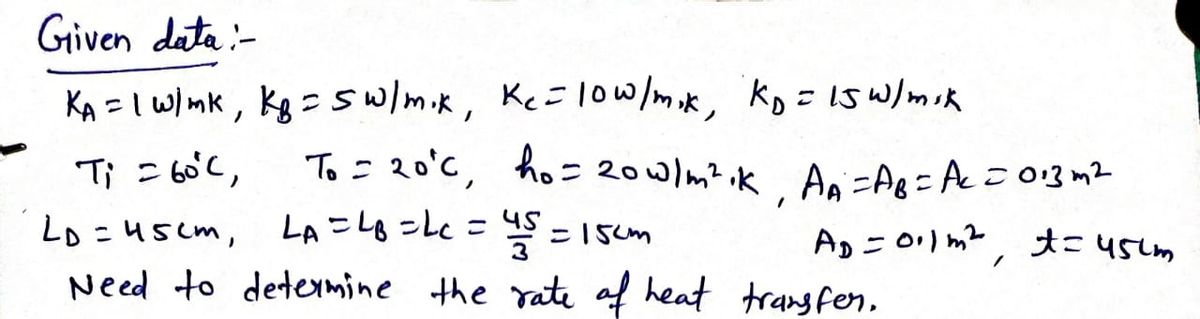 Given data :-
KA = 1 W/mK, KB = 5 W/m.K, Kc = 10 W/m.K, KD = 15 W/m.K
Ti = 60°C, To = 20°C, ho = 20 W/m².K, AA = AB = Ac = 0.3 m²
LD = 45cm, LA = LB = Lc = 45/3 = 15cm AD = 0.1 m², t = 45cm
Need to determine the rate of heat transfer.